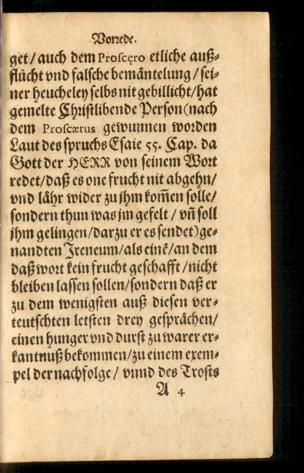 Vorrede.
get/ auch dem Proscęro etliche auß⸗
flücht vnd falsche bemäntelung/ sei⸗
ner heucheley selbs nit gebillicht/ hat
gemelte Christlibende Person (nach
dem Proscærus gewunnen worden
Laut des spruchs Esaie 55. Cap. da
Gott der HERR von seinem Wort
redet/ daß es one frucht nit abgehn/
vnd lähr wider zu jhm kom̃en solle/
sondern thun was jm gefelt / vñ soll
jhm gelingen/ darzu er es sendet) ge⸗
nandten Jreneum/ als einē/ an dem
daß wort kein frucht geschafft/ nicht
bleiben lassen sollen/ sondern daß er
zu dem wenigsten auß diesen ver⸗
teutschten letsten drey gesprächen/
einen hunger vnd durst zu warer er⸗
kantnuß bekommen/ zu einem exem⸗
pel der nachfolge / vnnd des Trosts
A 4